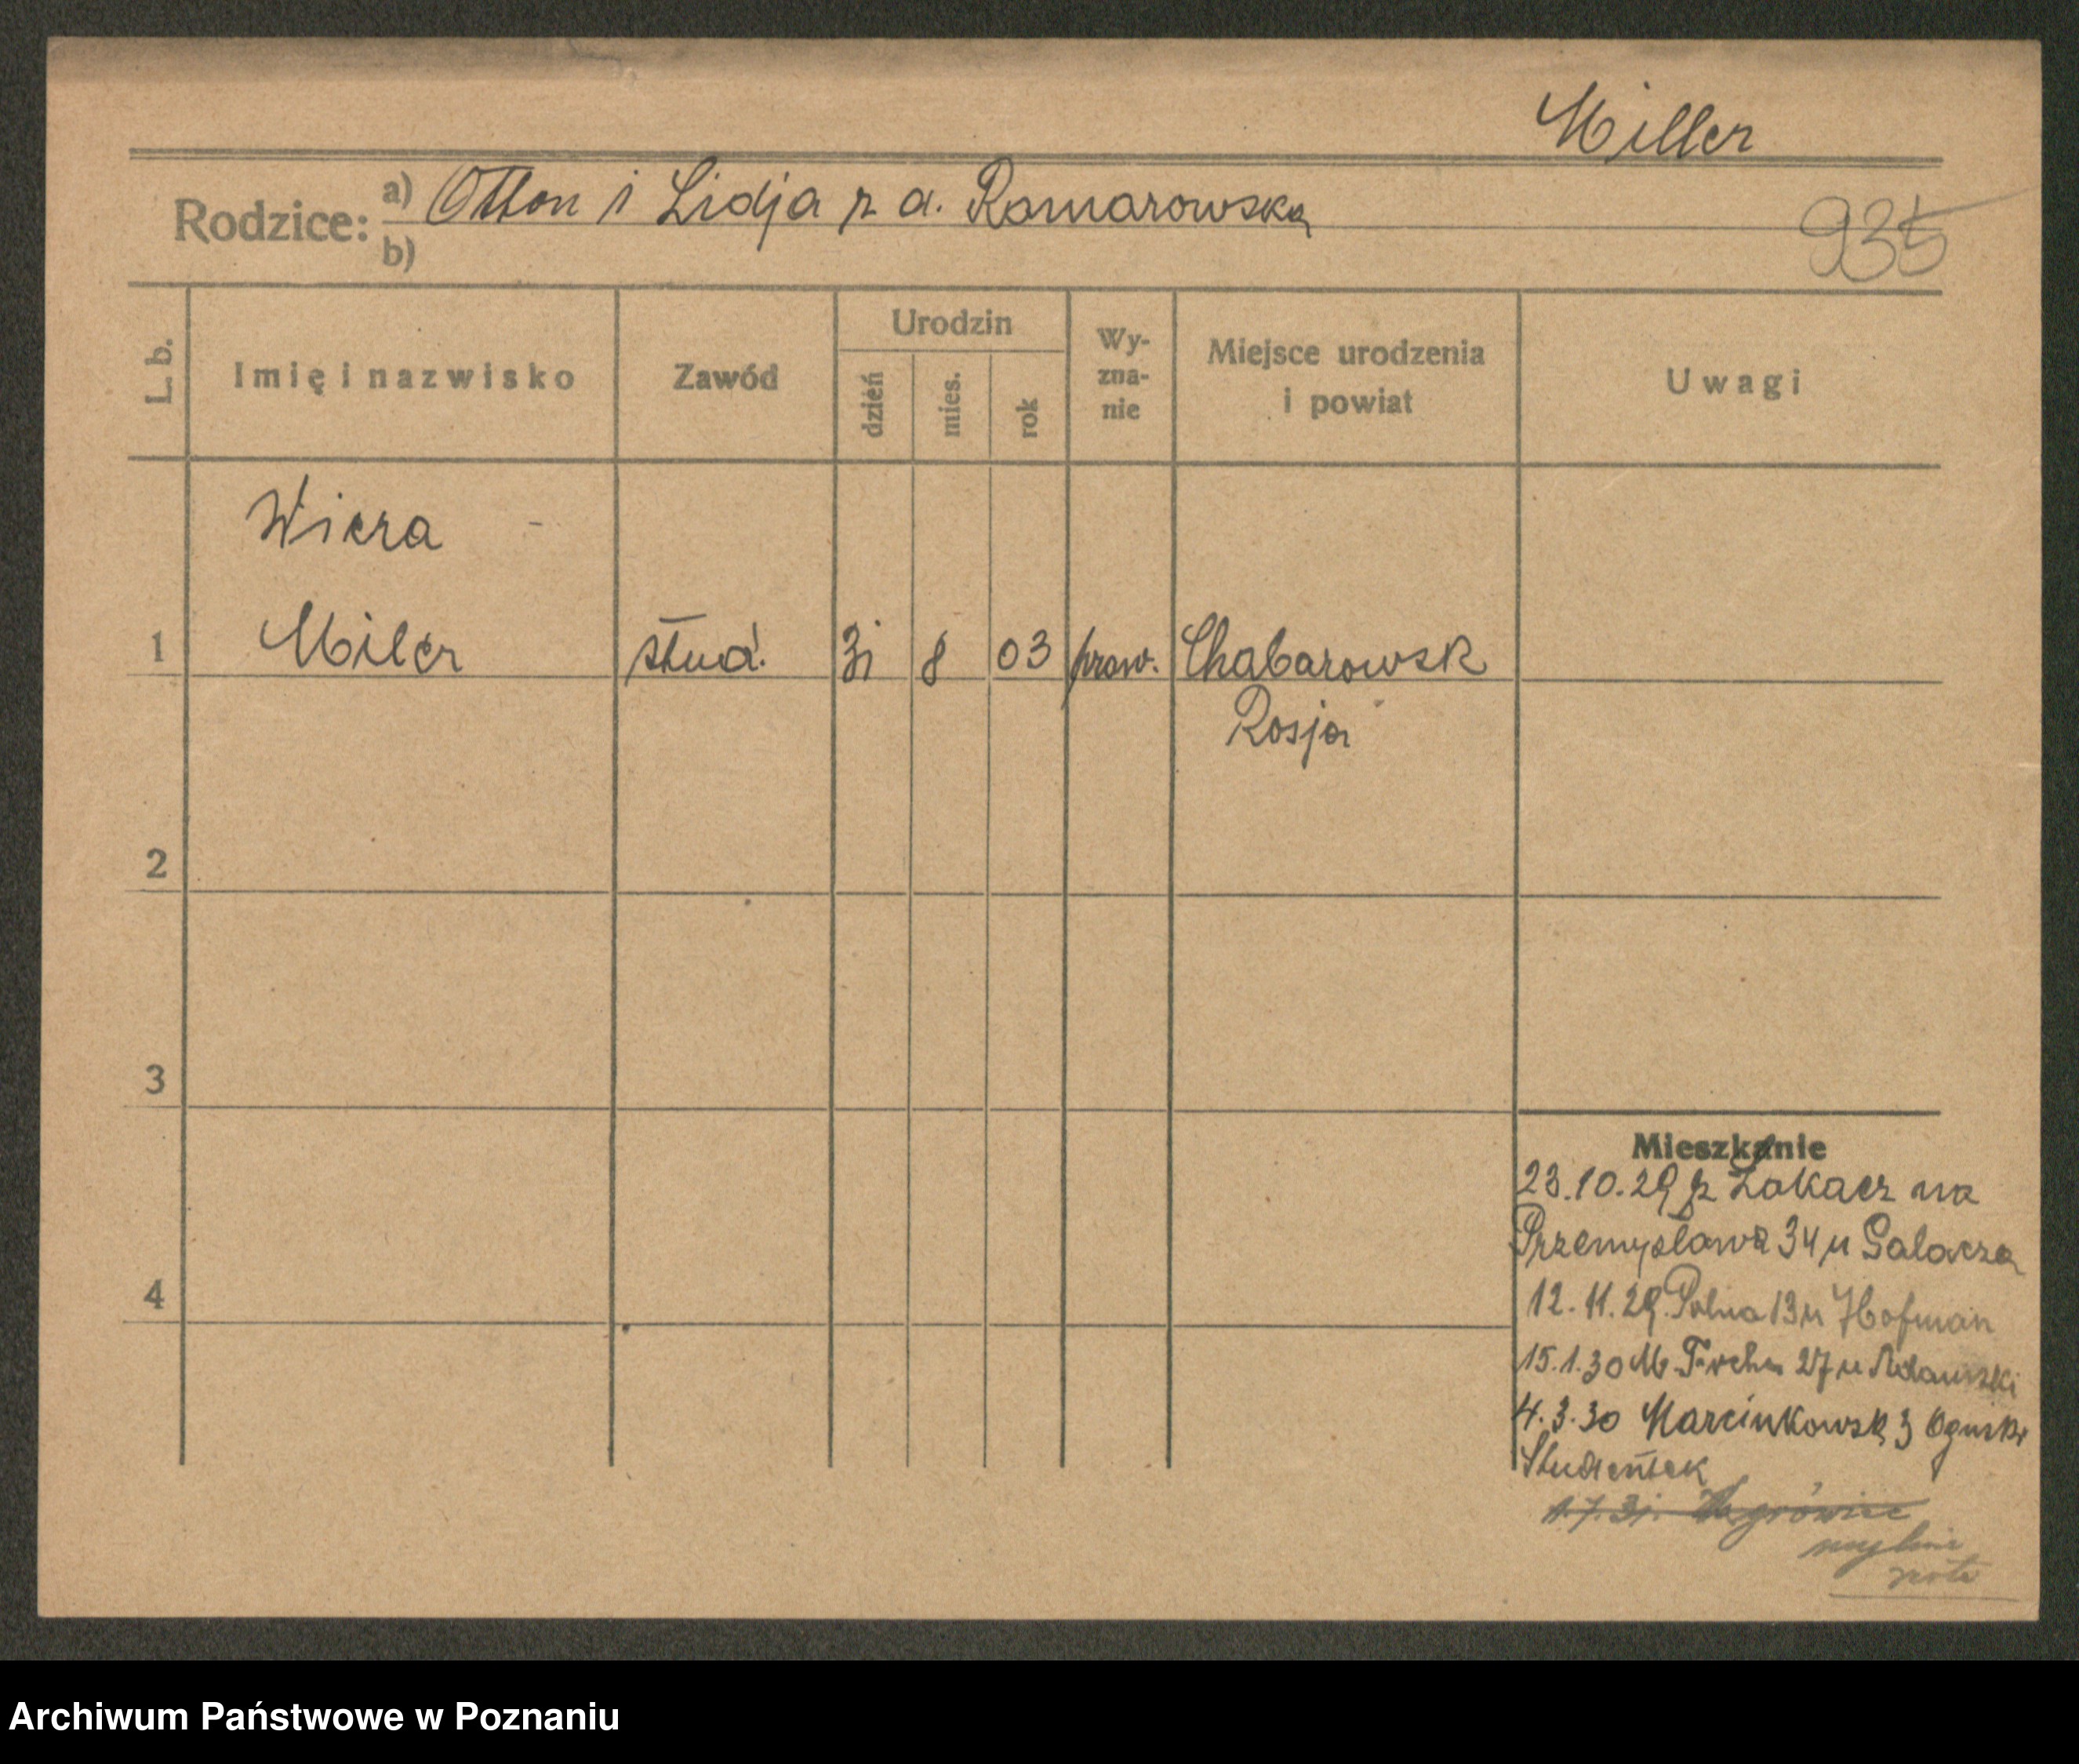 Miller
Rodzice: a) Otton i Lidja z d. Romarowska
b)
935
L. b.
Imię i nazwisko
Zawód
Urodzin
dzień
mies.
rok
Wy-
zna-
nie
Miejsce urodzenia
i powiat
Uwagi
Wiera
1 Miler stud. 31 8 03 praw. Chabarowsk
Rosja
2
3
4
Mieszkanie
23.10.29 z na
Przemysława 34 u Galacza
12.11.29. Polna 13 u Hofman
15.1.30 M. Focha 27 u Adamski
4.3.30 Marcinkowsk 3
1.7.31. Wągrówiec
mylnie
Archiwum Państwowe w Poznaniu